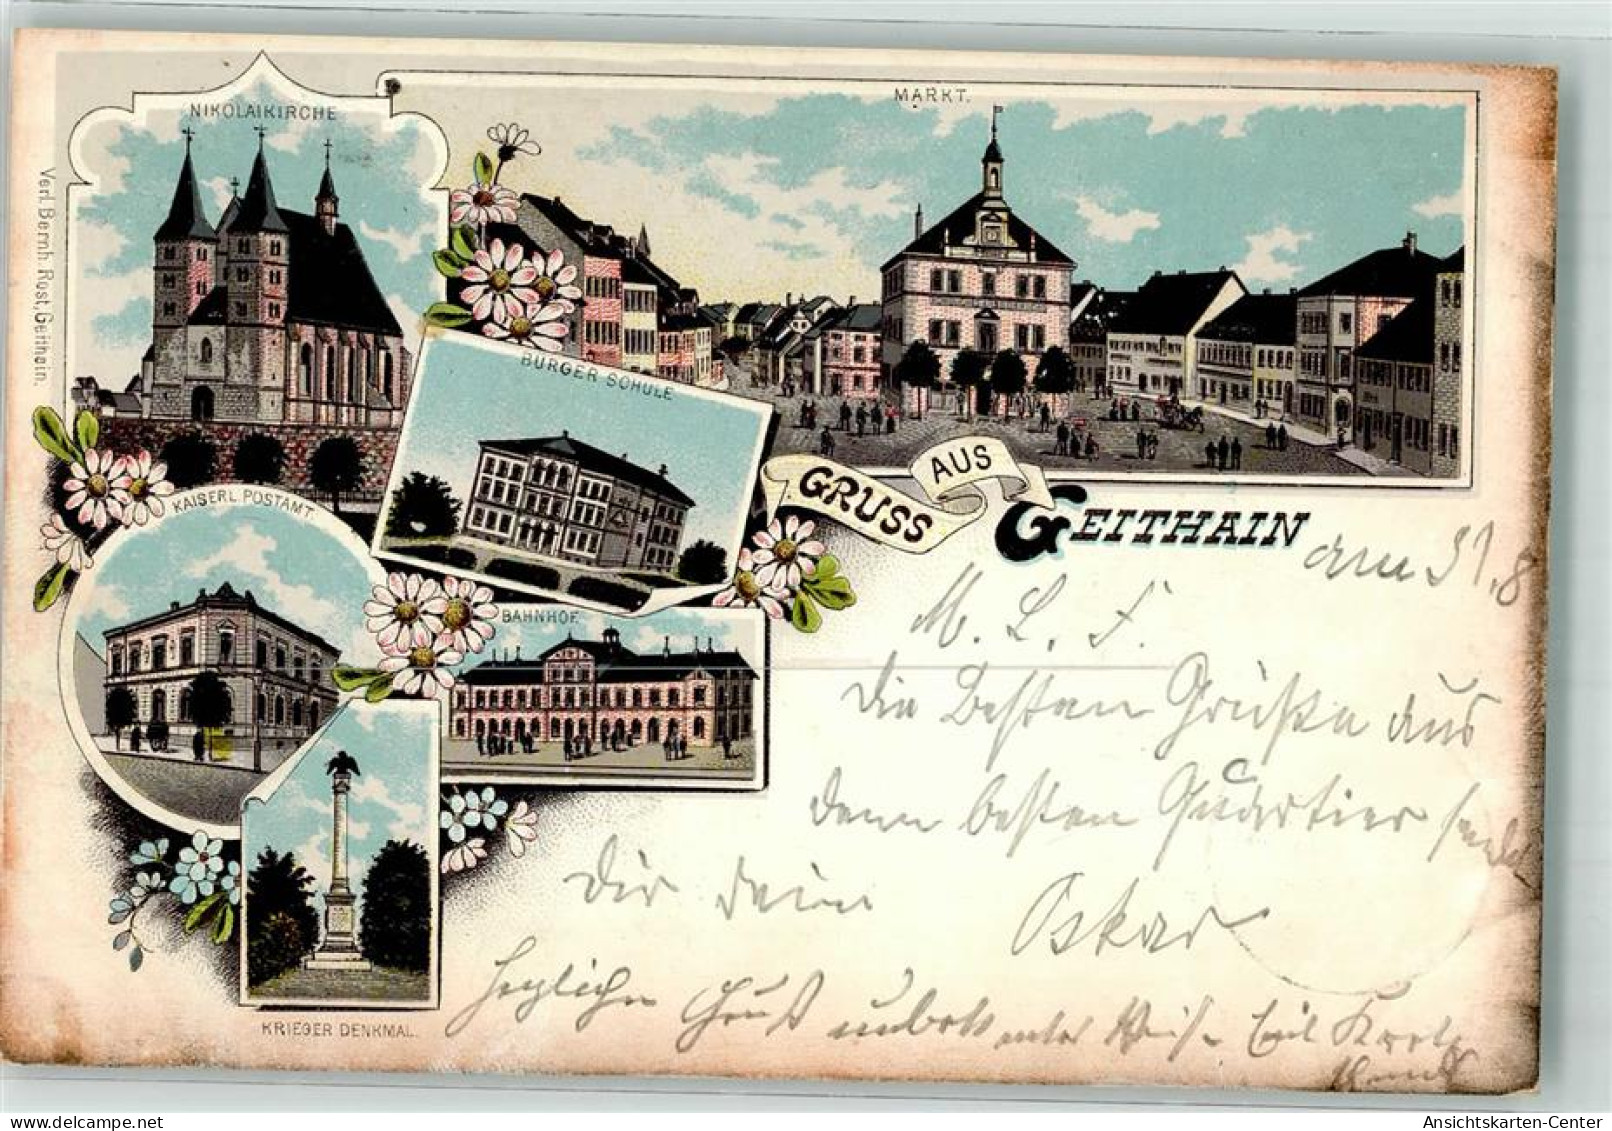 NIKOLAIKIRCHE
MARKT.
Verl. Bernh. Rost, Geithain.
BÜRGER SCHULE
KAISERL. POSTAMT
BAHNHOF.
KRIEGER DENKMAL.
GRUSS AUS GEITHAIN
am 31.8
M. L. F.
Die Besten Grüße aus
dem besten Quartier sendet
Dir Dein Oskar
Herzlichen Gruß
Ansichtskarten-Center